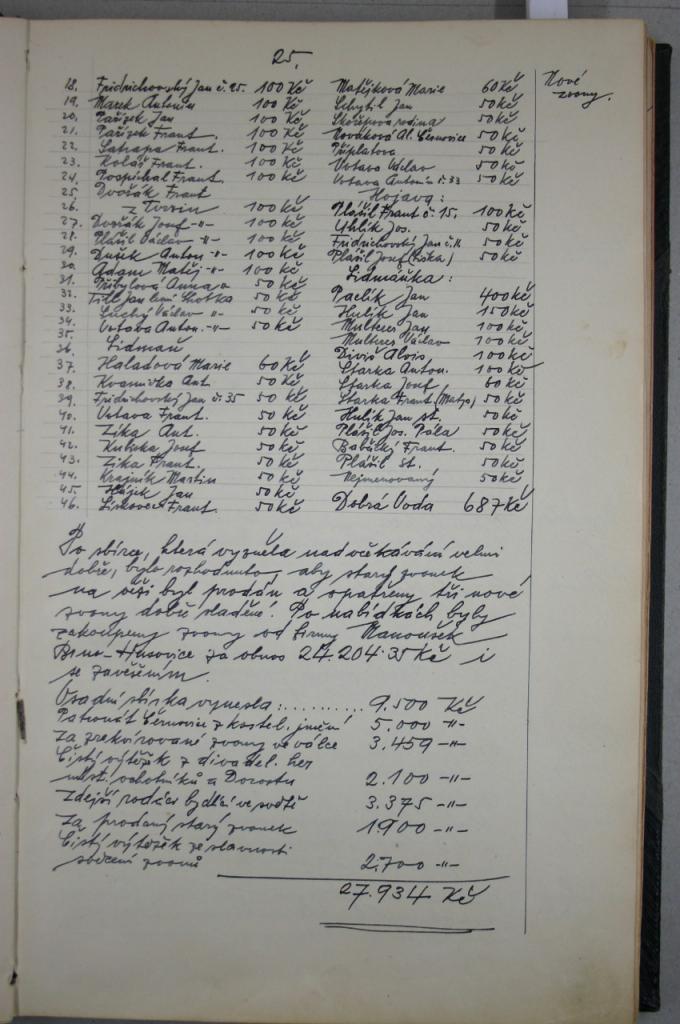 25.
Nové
zvony.
18. Fridrichovský Jan č. 25. 100 Kč
19. Marek Antonín 100 Kč
20. Pařízek Jan 100 Kč
21. Pařízek Frant. 100 Kč
22. Satrapa Frant. 100 Kč
23. Kolář Frant. 100 Kč
24. Pospíchal Frant. 100 Kč
25. Dvořák Frant
26. z 100 Kč
27. Dvořák Josef -„- 100 Kč
28. Plášil Václav -„- 100 Kč
29. Dušek Anton -„- 100 Kč
30. Adam Matěj -„- 100 Kč
31. Přibylová Anna 50 Kč
32. Jan Lhotka 50 Kč
33. Suchý Václav „ 50 Kč
34. Votava Anton. -„- 50 Kč
35. Lidmaň
36.
37. Haladová Marie 60 Kč
38. Kvasnička Ant. 50 Kč
39. Fridrichovský Jan č. 35 50 Kč
40. Votava Frant. 50 Kč
41. Zíka Ant. 50 Kč
42. Kuboka Josef 50 Kč
43. Zíka Frant. 50 Kč
44. Krajník Martin 50 Kč
45. Hájek Jan 50 Kč
46. Liskovec Frant. 50 Kč
Matějková Marie 60 Kč
Schytil Jan 50 Kč
Skořepova rodina 50 Kč
Nováková Al. Černovice 50 Kč
Příplatova 50 Kč
Votava Václav 50 Kč
Votava Antonín č. 33 50 Kč
Hojava:
Plášil Frant č. 15. 100 Kč
Uhlík Jos. 50 Kč
Fridrichovský Jan č. 11 50 Kč
Plášil Josef 50 Kč
Lidmaňka:
Paclík Jan 400 Kč
Hulík Jan 150 Kč
Multerer Jan 100 Kč
Multerer Václav 100 Kč
Diviš Alois 100 Kč
Starka Anton. 100 Kč
Starka Josef 60 Kč
Starka Frant 50 Kč
Hulík Jan st. 50 Kč
Plášil Jos. Pála 50 Kč
Babický Frant. 50 Kč
Plášil st. 50 Kč
Nejmenovaný 50 Kč
Dobrá Voda 687 Kč
Po sbírce, která vyzněla nad očekávání velmi
dobře, bylo rozhodnuto, aby starý zvonek
na věži byl prodán a opatřeny tři nové
zvony dobře sladěné. Po nabídkách byly
zakoupeny zvony od firmy Manoušek
Brno-Husovice za obnos 27.204.35 Kč i
se zavěšením.
Osadní sbírka vynesla:.......... 9.500 Kč
Patronát Černovice z kostel. jmění 5.000 -„-
Za zrekvírované zvony ve válce 3.459 -„-
Čistý výtěžek z divadel. her
míst. ochotníků a Dorostu 2.100 -„-
Zdejší rodáci bydlící ve světě 3.375 -„-
Za prodaný starý zvonek 1.900 -„-
Čistý výtěžek ze slavnosti
svěcení zvonů 2.700 -„-
27.934 Kč